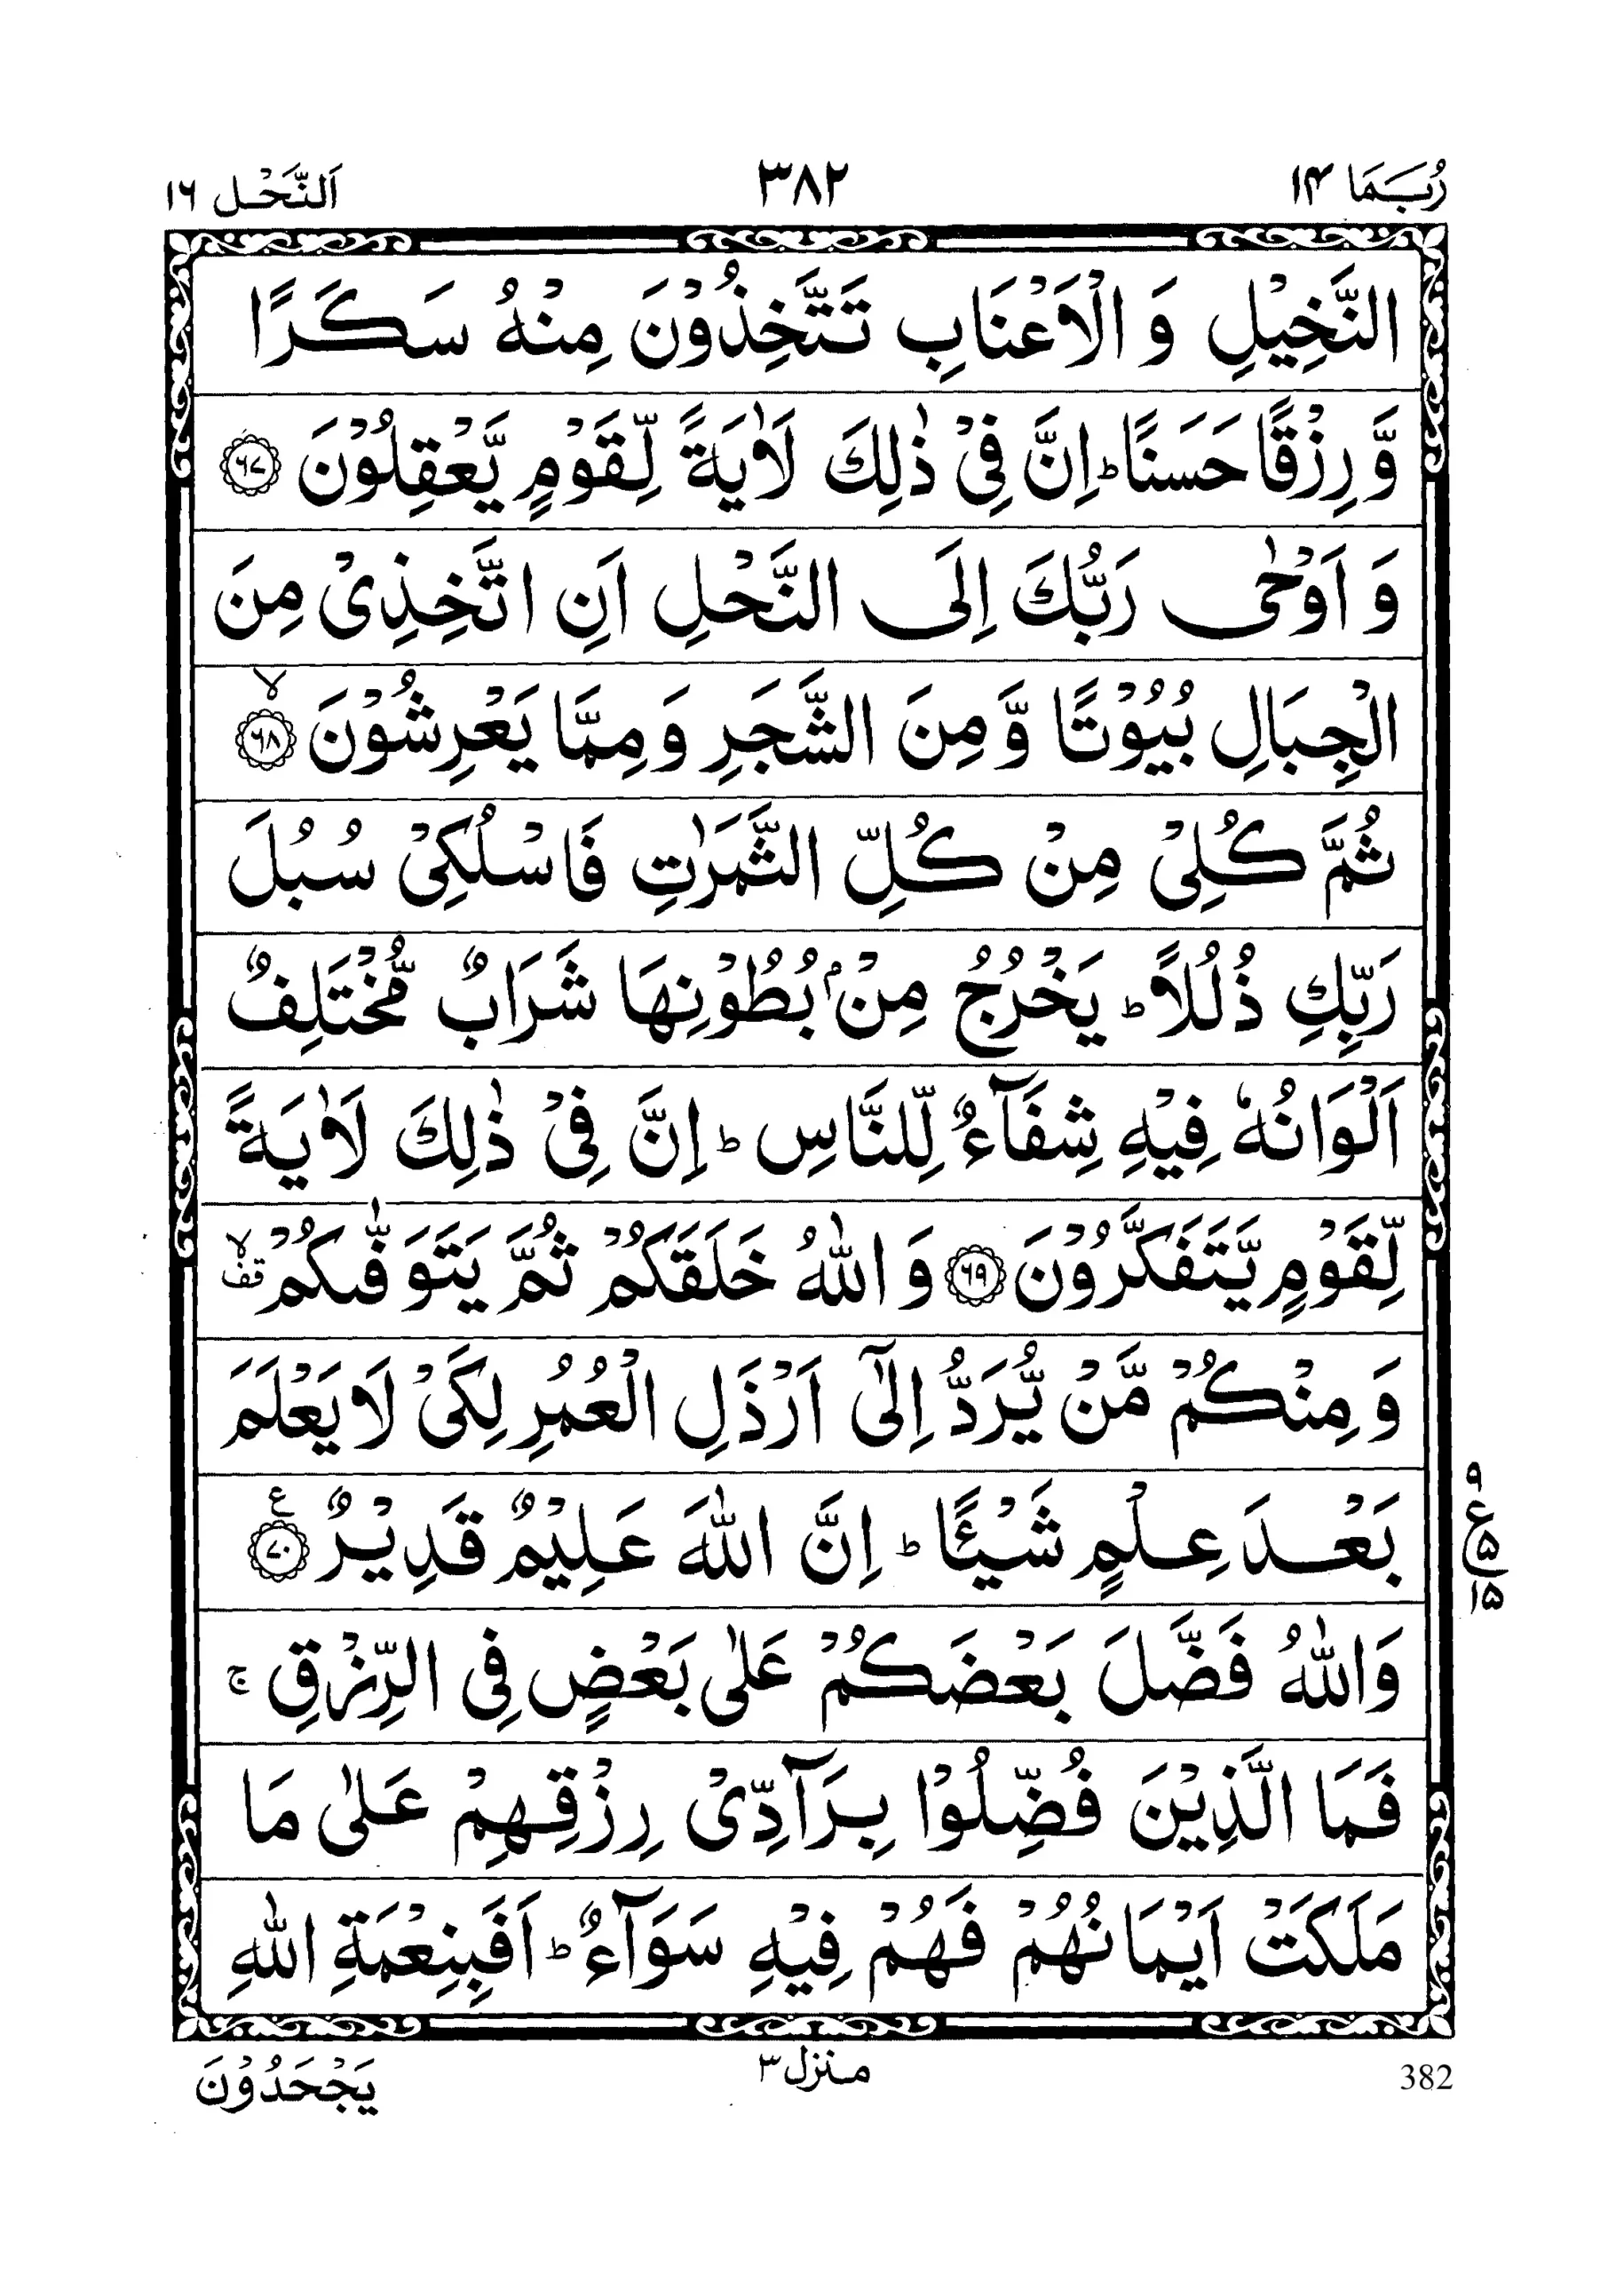 رُبَمَا ١٤ ٣٨٢ اَلنَّحْل ١٦
النَّخِيْلِ وَ الْاَعْنَابِ تَتَّخِذُوْنَ مِنْهُ سَكَرًا
وَّ رِزْقًا حَسَنًا ؕ اِنَّ فِيْ ذٰلِكَ لَاٰيَةً لِّقَوْمٍ يَّعْقِلُوْنَ ﴿٦٧﴾
وَ اَوْحٰى رَبُّكَ اِلَى النَّحْلِ اَنِ اتَّخِذِيْ مِنَ
الْجِبَالِ بُيُوْتًا وَّ مِنَ الشَّجَرِ وَ مِمَّا يَعْرِشُوْنَ ﴿٦٨﴾ ۙ
ثُمَّ كُلِيْ مِنْ كُلِّ الثَّمَرٰتِ فَاسْلُكِيْ سُبُلَ
رَبِّكِ ذُلُلًا ؕ يَخْرُجُ مِنْۢ بُطُوْنِهَا شَرَابٌ مُّخْتَلِفٌ
اَلْوَانُهٗ فِيْهِ شِفَآءٌ لِّلنَّاسِ ؕ اِنَّ فِيْ ذٰلِكَ لَاٰيَةً
لِّقَوْمٍ يَّتَفَكَّرُوْنَ ﴿٦٩﴾ وَ اللّٰهُ خَلَقَكُمْ ثُمَّ يَتَوَفّٰىكُمْ ۙ قف
وَ مِنْكُمْ مَّنْ يُّرَدُّ اِلٰٓى اَرْذَلِ الْعُمُرِ لِكَيْ لَا يَعْلَمَ
بَعْدَ عِلْمٍ شَيْـًٔا ؕ اِنَّ اللّٰهَ عَلِيْمٌ قَدِيْرٌ ﴿٧٠﴾ ع
٩ ع ٥ ١٥
وَاللّٰهُ فَضَّلَ بَعْضَكُمْ عَلٰى بَعْضٍ فِي الرِّزْقِ ۚ
فَمَا الَّذِيْنَ فُضِّلُوْا بِرَآدِّيْ رِزْقِهِمْ عَلٰى مَا
مَلَكَتْ اَيْمَانُهُمْ فَهُمْ فِيْهِ سَوَآءٌ ؕ اَفَبِنِعْمَةِ اللّٰهِ
382 منزل ٣ يَجْحَدُوْنَ